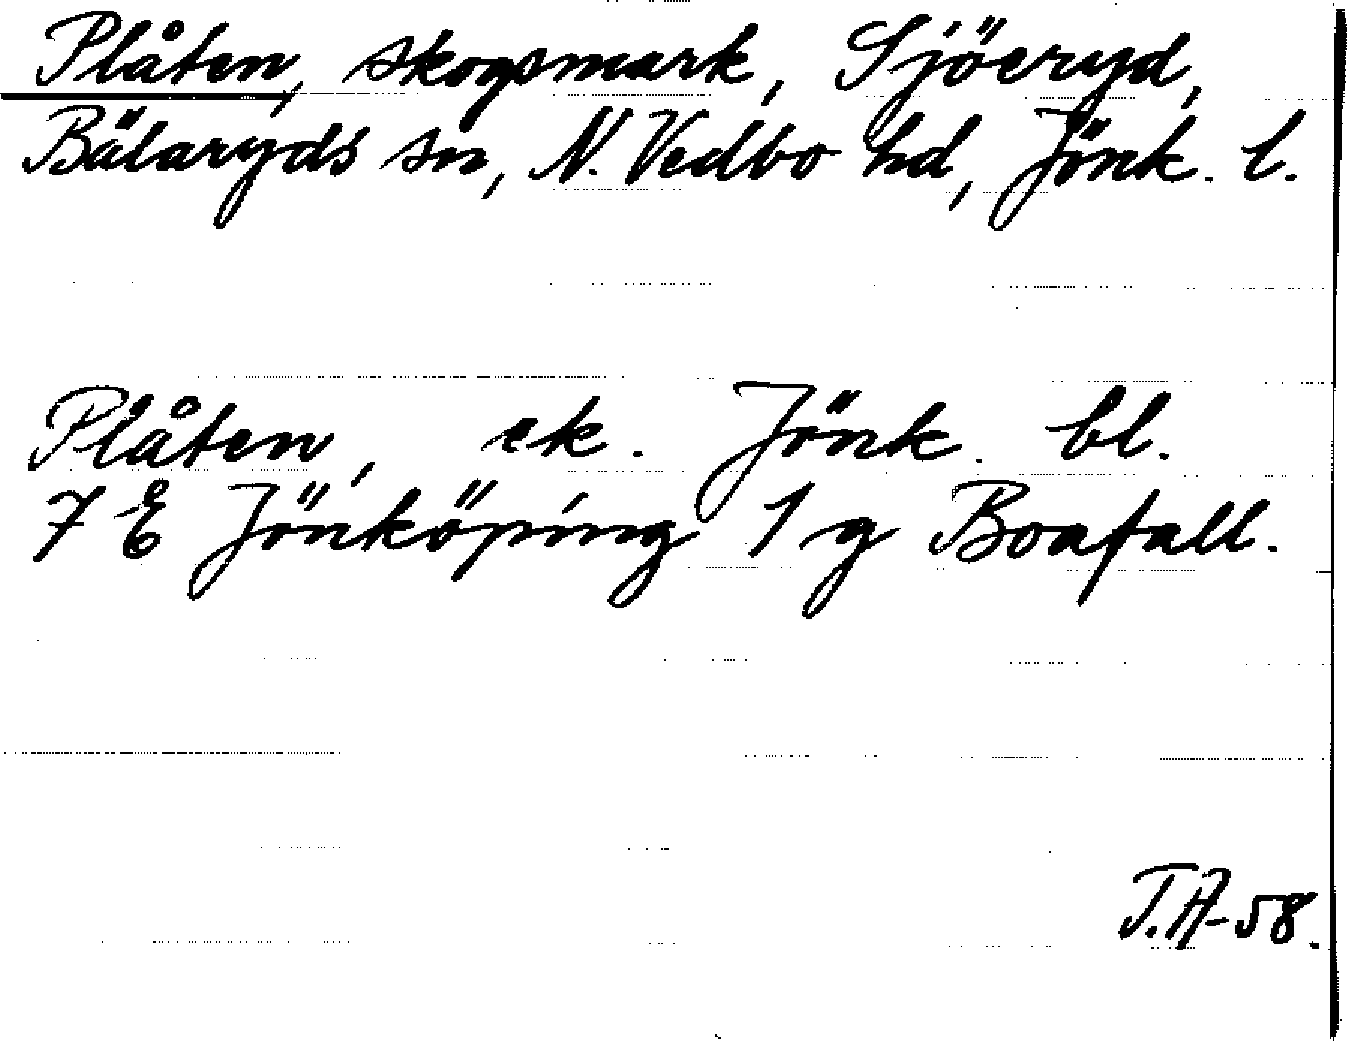 Plåten, skogsmark, Sjöeryd,
Bälaryds sn, N. Vedbo hd, Jönk. l.
Plåten, ek. Jönk. bl.
7 E Jönköping 1 g Boafall.
T.A-58.